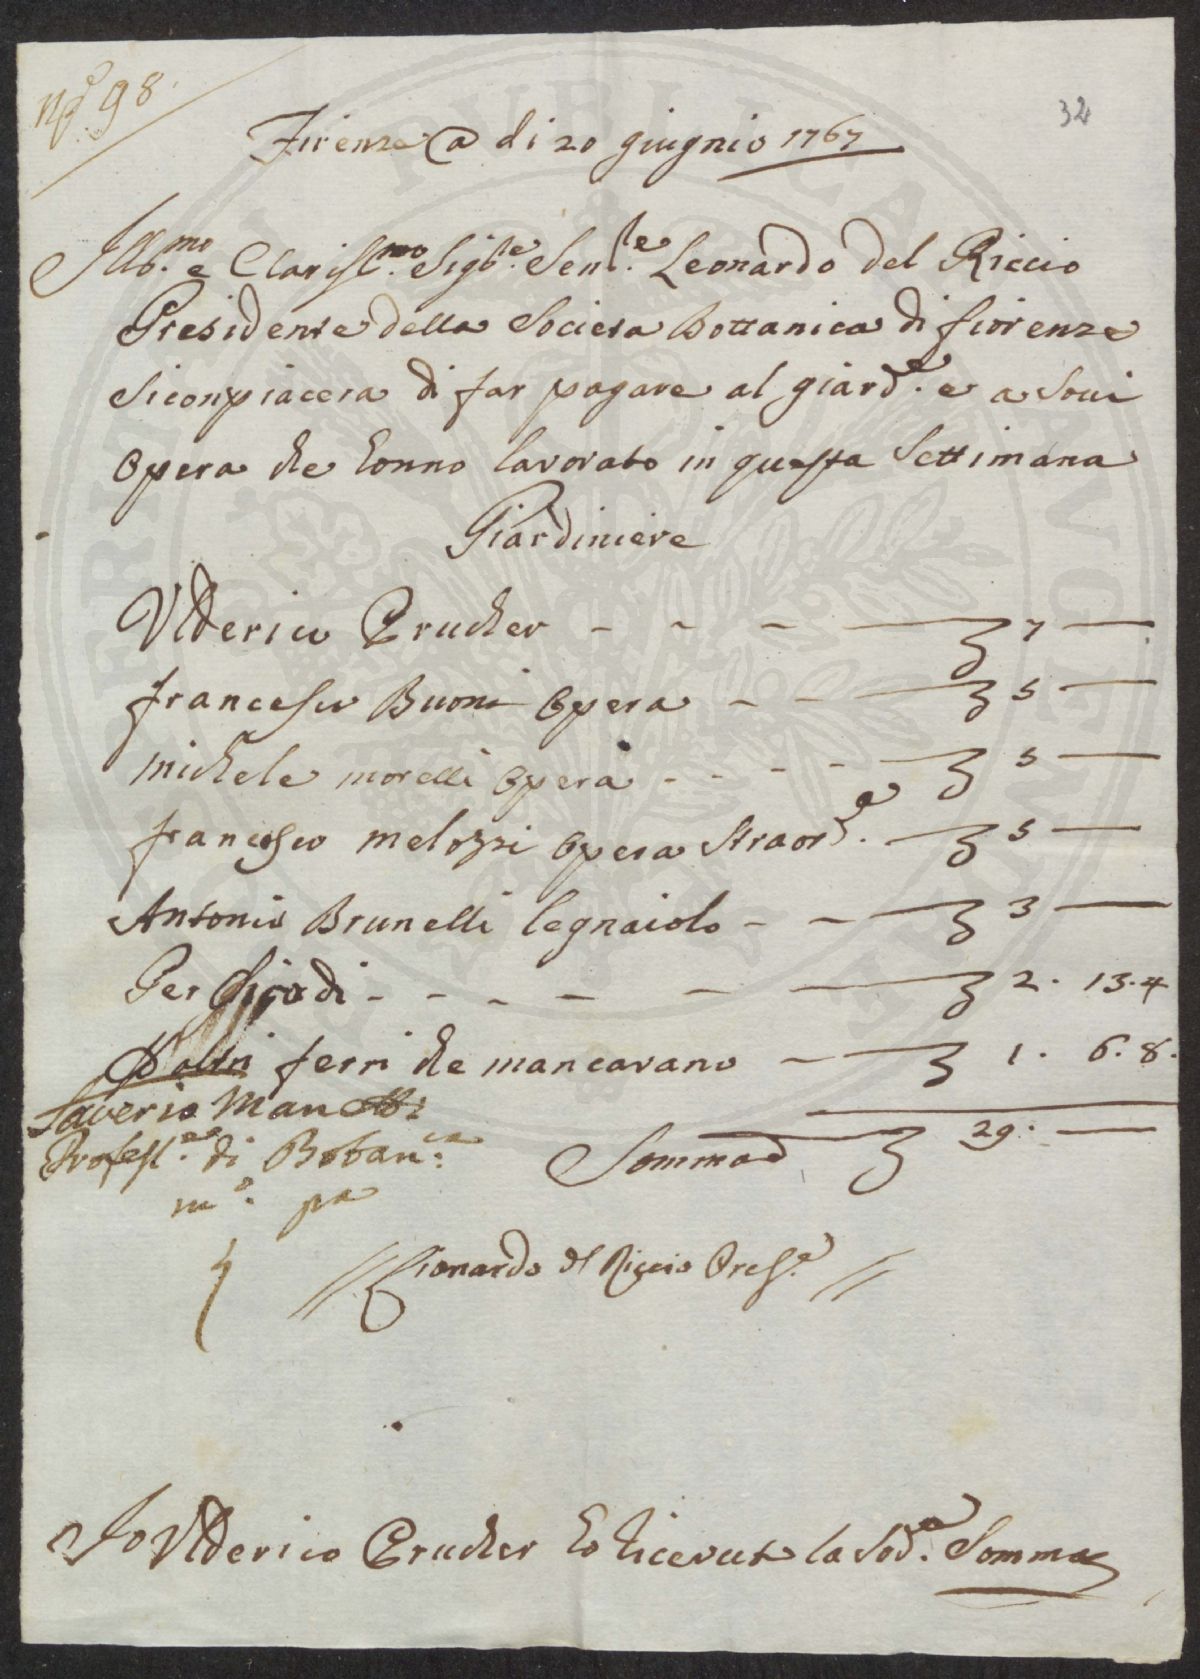 N.º 98.
32
Firenze @ di 20 giugnio 1767
Ill.mo e Clariss.mo Sig.re Sen.re Leonardo del Riccio
Presidente della Societa Bottanica di fiorenze
Siconpiacera di far pagare al giard.e e a Soui
Opera che honno lavorato in questa Settimana
Giardiniere
Ulderico Prucher - - - 7 —
francescho Buoni Opera - - 5 —
michele morelli Opera - - - - 5 —
francescho melozzi Opera Straord.a 5 —
Antonio Brunelli legnaiolo - - 3 —
Per Chiodi - - - - - 2. 13. 4
D'altri ferri che mancavano - 1. 6. 8.
Saverio Manetti
Profess.re di Botan.ca
Somma 29. —
m.o pa
Lionardo del Riccio Pres.e
Io Ulderico Prucher ho ricevuto la Sod.a Somma